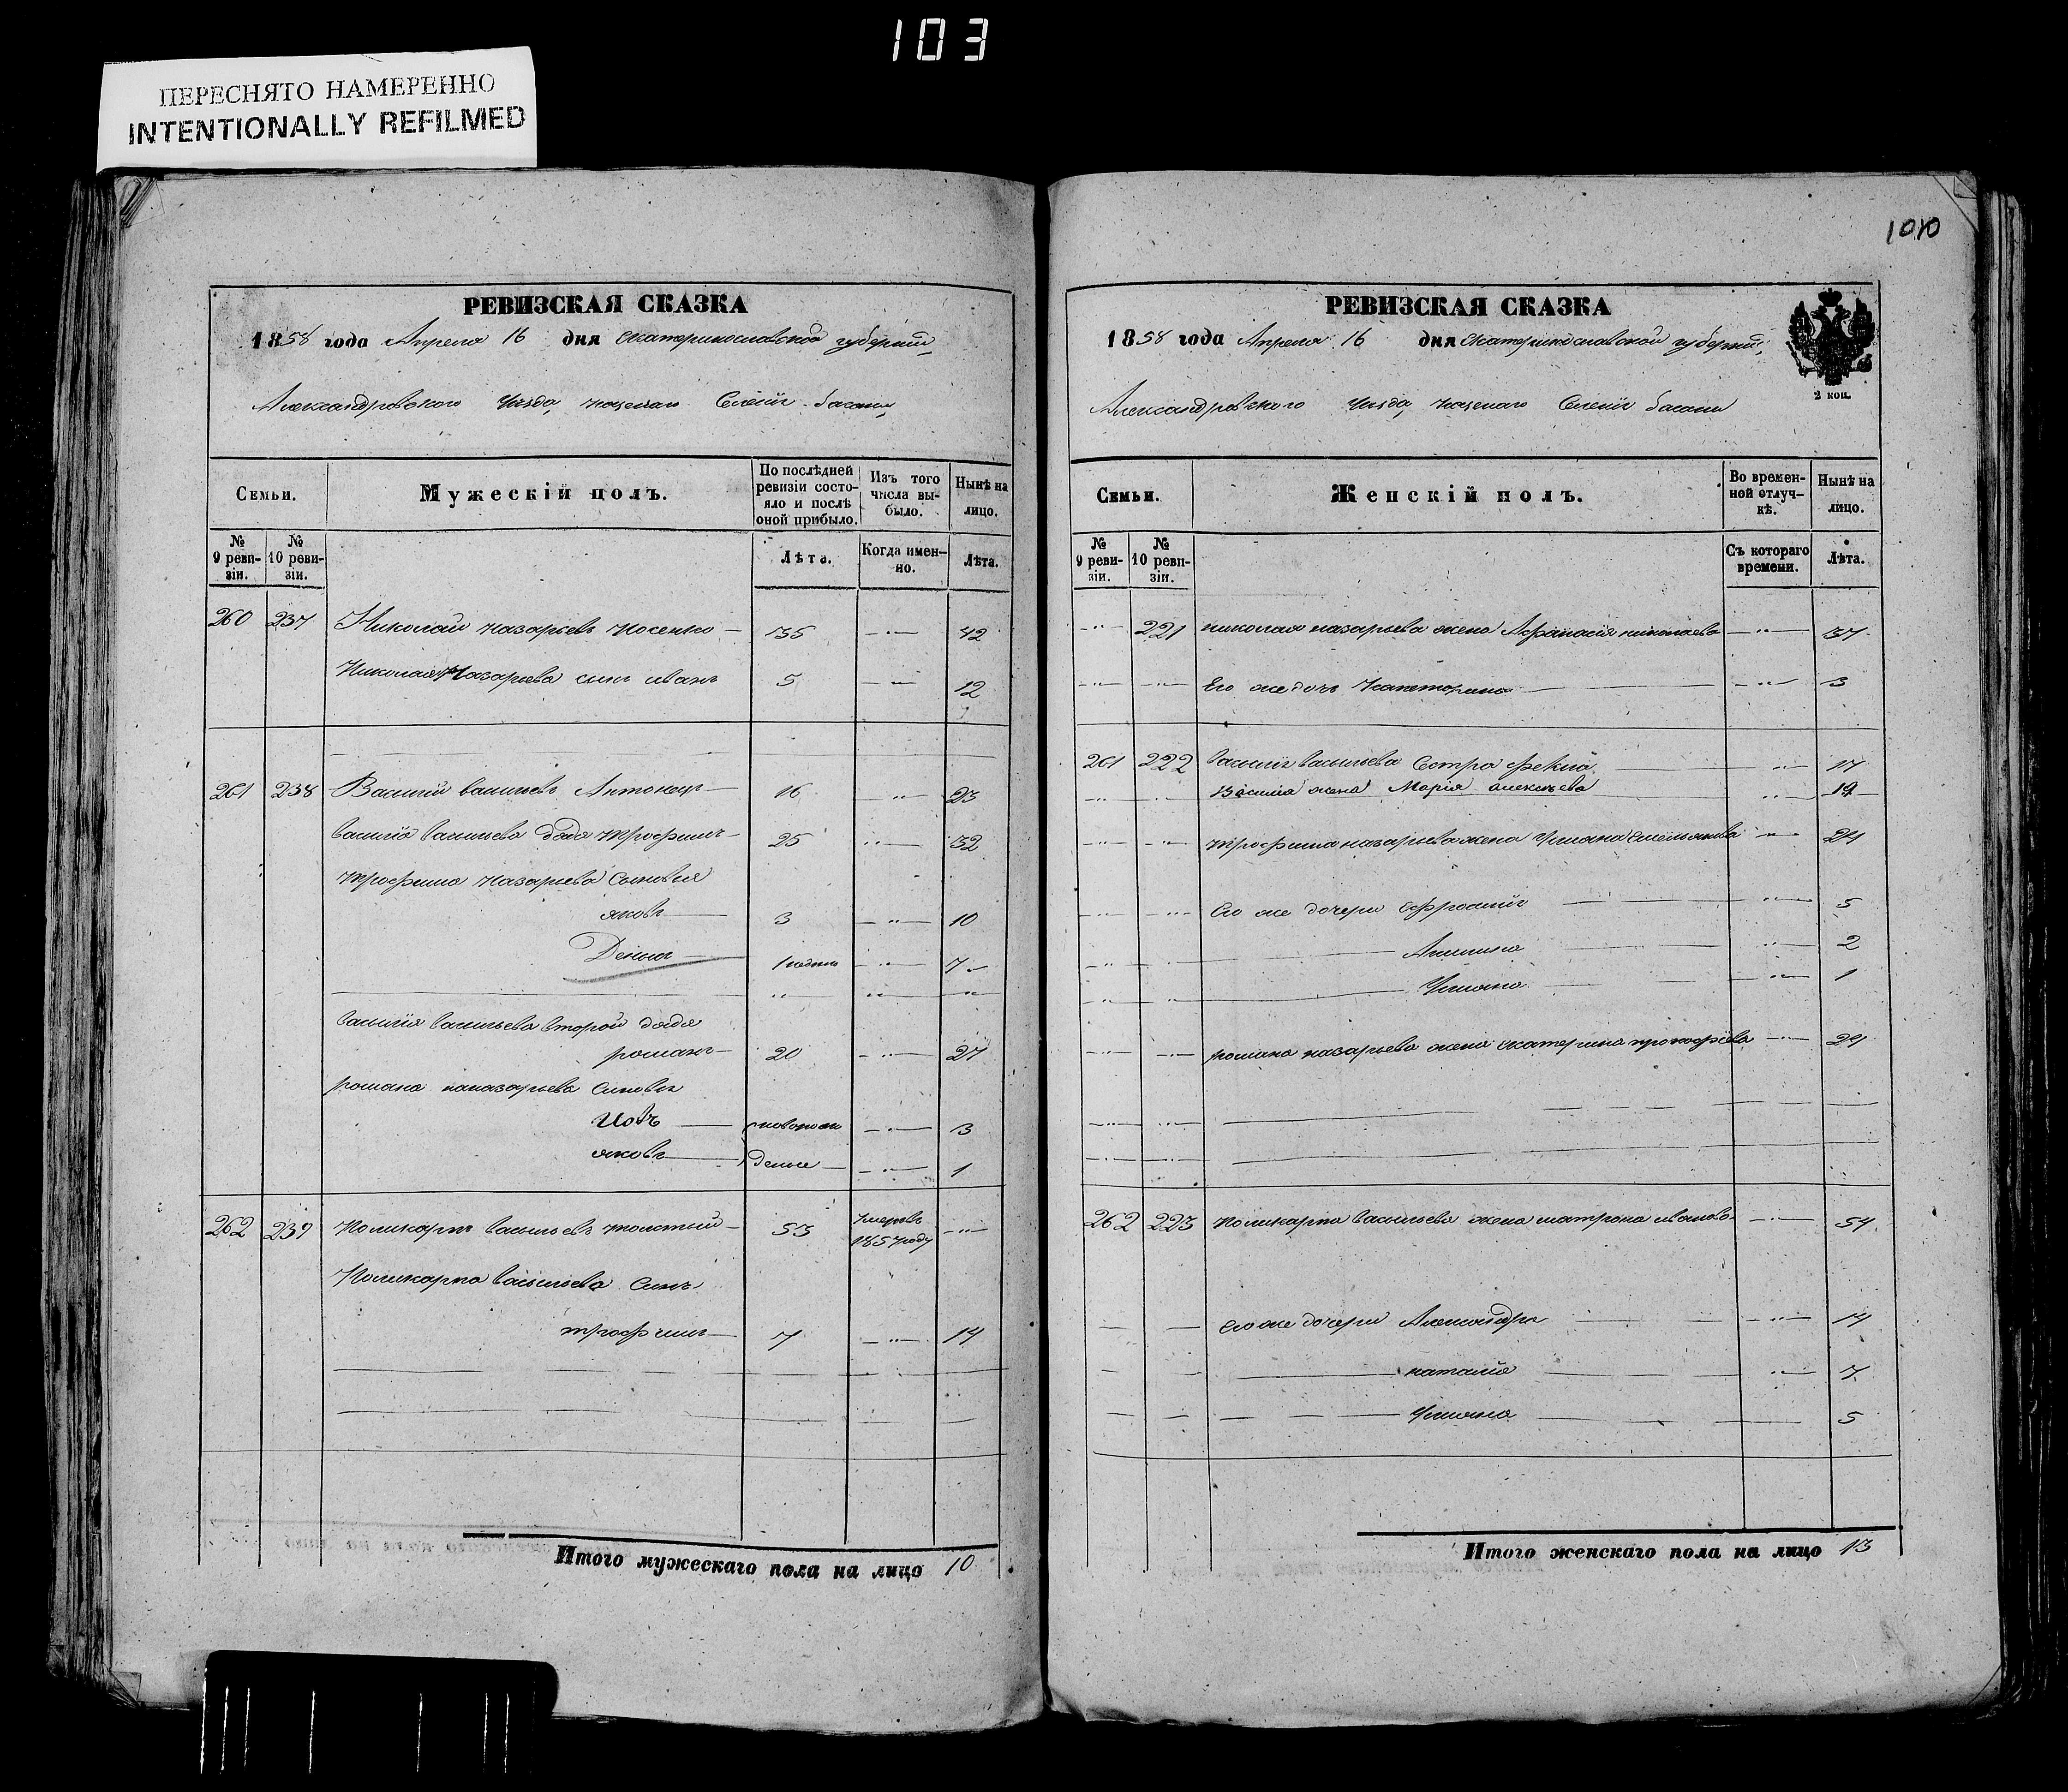 103
ПЕРЕСНЯТО НАМЕРЕННО
INTENTIONALLY REFILMED
РЕВИЗСКАЯ СКАЗКА
1858 года Апреля 16 дня Екатеринославской губернии,
Александровского Уезда, Селении басани,
Семьи.
Мужескій полъ.
По послѣдней ревизіи состояло и послѣ оной прибыло.
Изъ того числа выбыло.
Нынѣ на лицо.
№ 9 ревизіи.
№ 10 ревизіи.
Лѣта.
Когда именно.
Лѣта.
260 237 Николай назарьевъ Носенко 35 42
Николая Назарьева синъ иванъ 5 12
261 238 Василий васильевъ Антонец 16 23
василія васильева дядя трофимъ 25 32
трофима назарьева Сыновья
яковъ 3 10
Денис 7
василія васильева второй дядя
романъ 20 27
романа назарьева Синовья
Иовъ 3
яковъ 1
262 239 Поликарпъ васильевъ толстий 53 умеръ 1857 году
Поликарпа васильева Синъ
трофимъ 7 14
Итого мужескаго пола на лицо 10
1010
РЕВИЗСКАЯ СКАЗКА
1858 года Апреля 16 дня Екатеринославской губернии,
2 коп.
Александровского Уезда, Селении басани
Семьи.
Женскій полъ.
Во временной отлучкѣ.
Нынѣ на лицо.
№ 9 ревизіи.
№ 10 ревизіи.
Съ котораго времени.
Лѣта.
221 николая назарьева жена Афанасия николаева 37
Его же дочь Катерина 3
261 222 василія васильева Сестра Фекла 17
василия жена Мария алексеева 19
трофима назарьева жена Уляна Емельянова 24
Его же дочери Ефросинія 5
Акилина 2
Уляна 1
романа назарьева жена екатерина прокофіева 24
262 223 поликарпа васильева жена матрона иванова 54
его же дочери Александра 14
наталія 7
Уляна 5
Итого женскаго пола на лицо 13